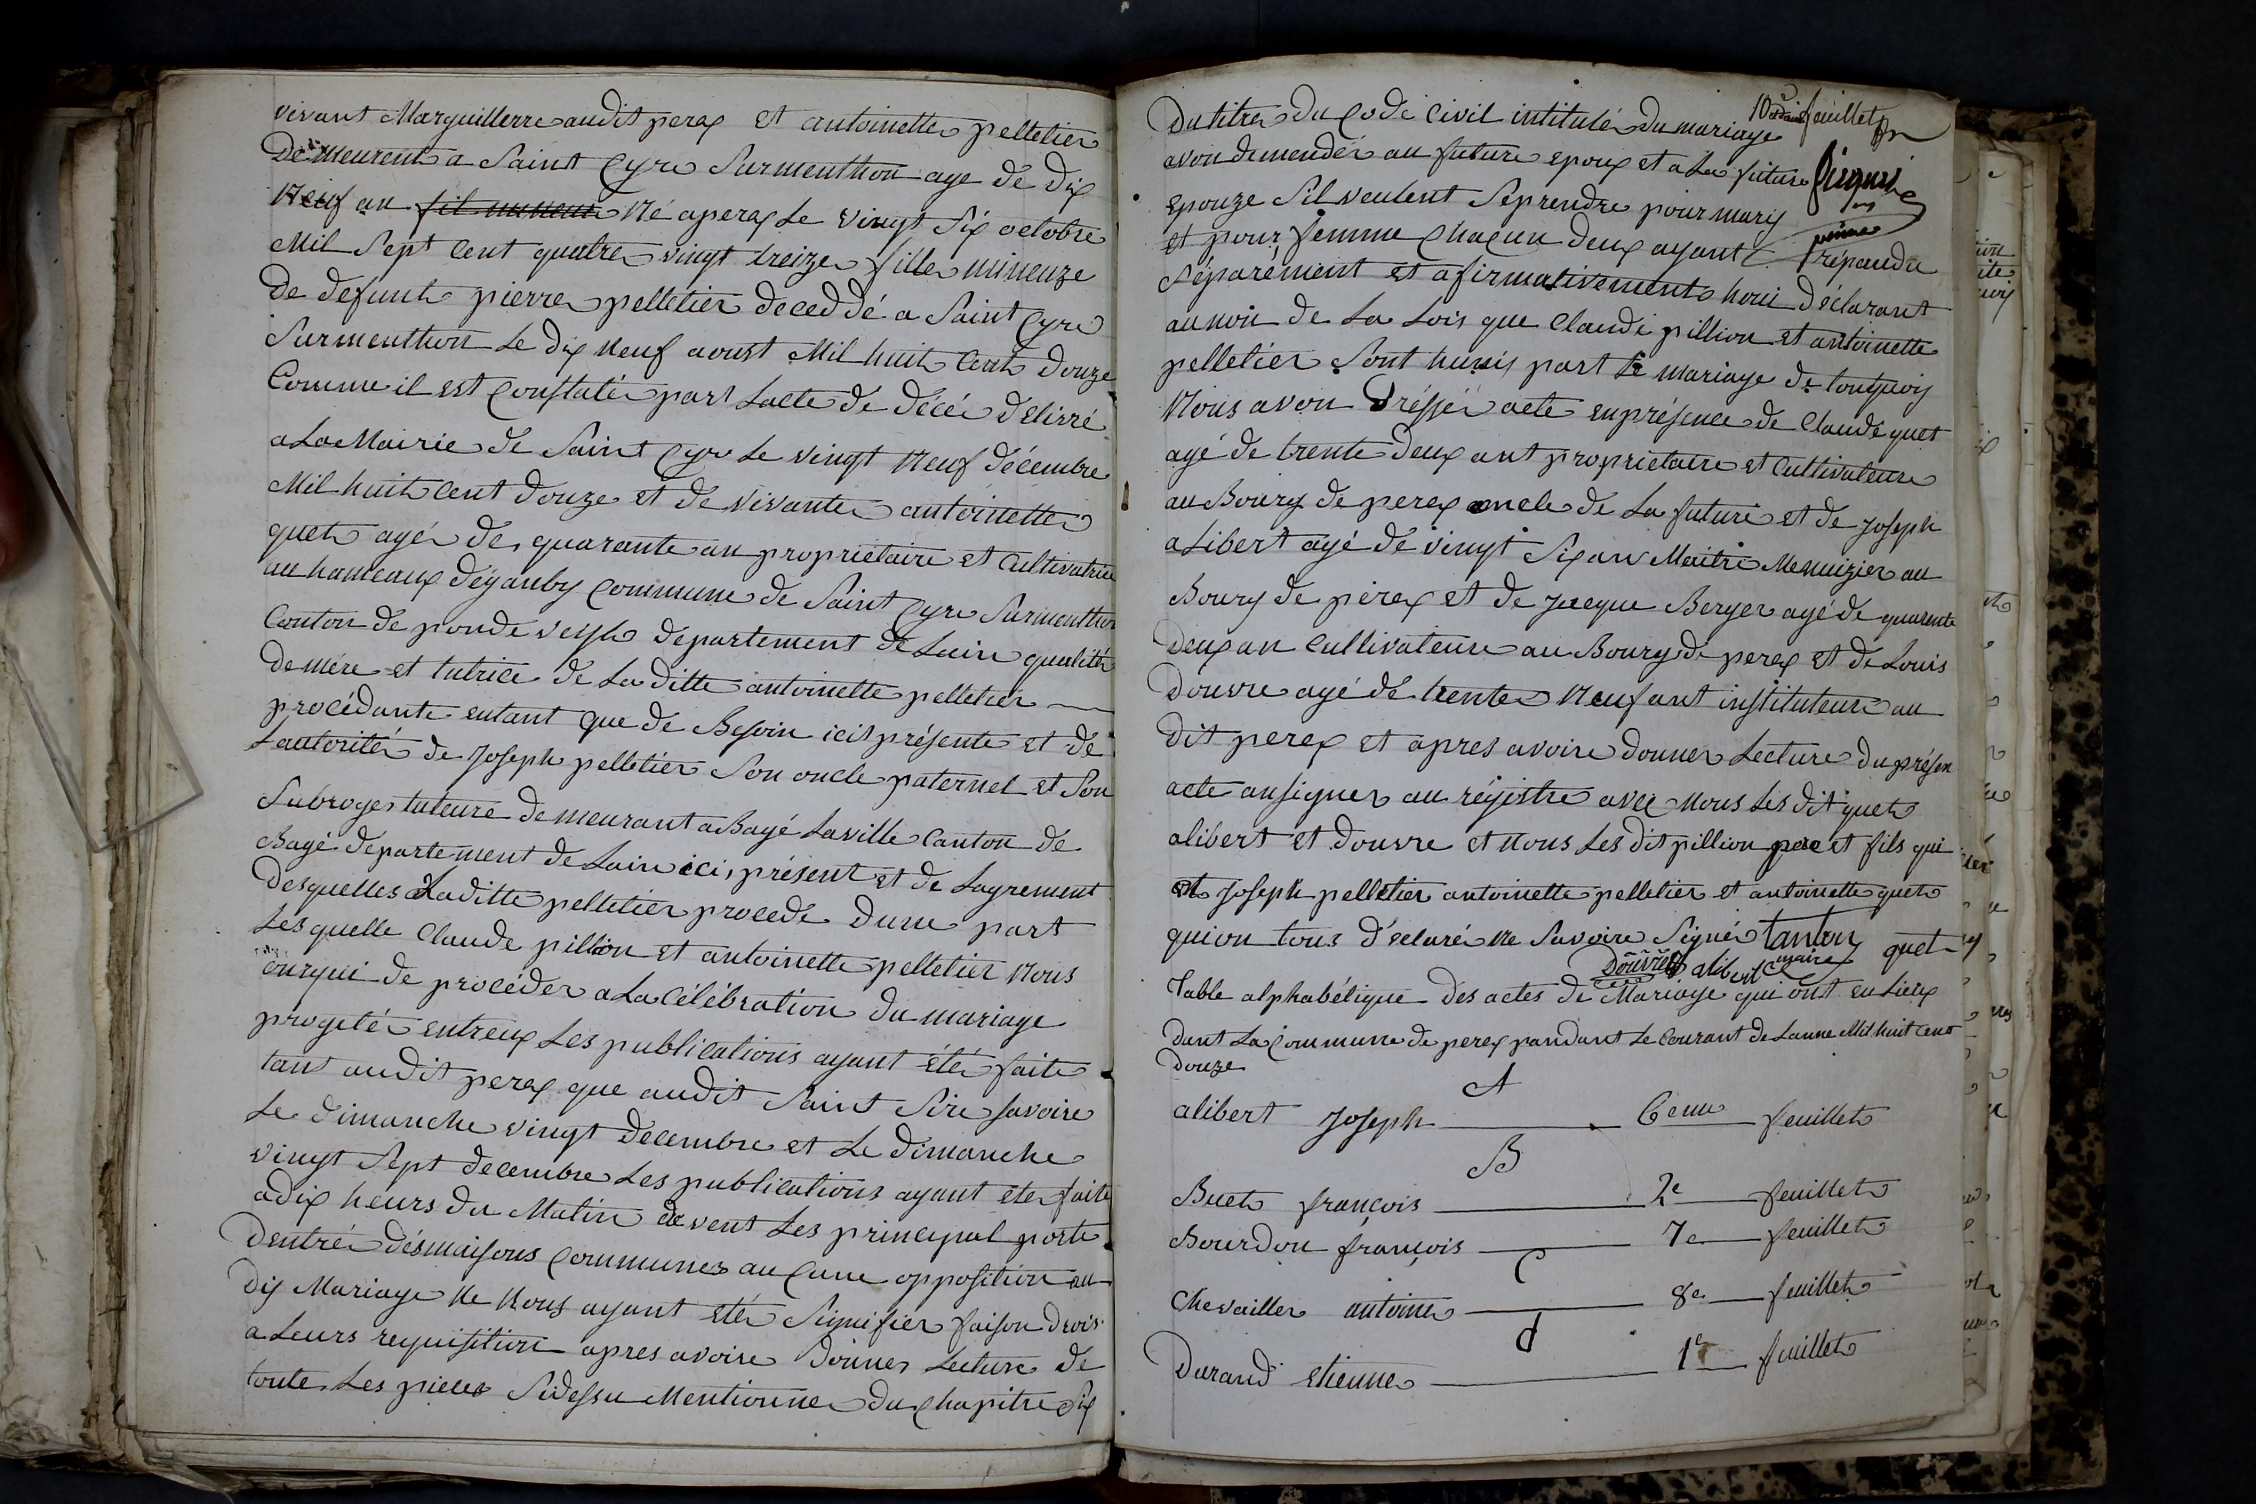 vivant Marguillerre audit perex et antoinette pelletier
Demeurent a Saint Cyre Surmenthon age de dix
Neuf an fil mineur Né aperex Le vingt Six octobre
Mil Sept Cent quatre vingt treize fille mineuze
De defunt pierre pelletier deceddé a Saint Cyre
Surmenthon Le dix Neuf aoust Mil huit Cent Douze
Comme il est Constatée part Lacte de décée delivré
a La Mairie de Saint Cyre Le vingt Neuf décembre
Mil huit Cent Douze et de vivante antoinette
quet agée de quarante an propriétaire et Cultivatrice
au hameaux dégauby Commune de Saint Cyre Surmenthon
Canton de pondeveyle département de Lain qualité
de mére et tutrice de La ditte antoinette pelletier
procédante entant que de Besoin icit présente et de
Lautorité de Joseph pelletier Son oncle paternel et Son
Subroge tuteure demeurant a Bagé Laville Canton de
Bagé departement de Lain ici présent et de Lagrement
desquelles Laditte pelletier procede Dune part
Lésquelle Claude pillion et antoinette pelletier Nous
on requi de procéder a La Célébration du mariage
progeté entreux Les publications ayant étée faite
tant audit perex que audit Saint Sire Savoire
Le dimanche vingt decembre et Le dimanche
vingt Sept decembre Les publications ayant ete faite
adix heurs du Matin devent Les principal porte
Dentrée désmaisons Communes aucune opposition au
dis Mariage Ne Nous ayant eté Signifier faison Drois
a Leurs requisition apres avoire Donner Lecture de
toute Les pieces Sidessu Mentionne du Chapitre Six
10 feuillet
Du titre Du Code Civil intitulé Du mariage
avon demander au future epoux et a La future
epouze Sil veulent Seprendre pour mary
et pour femme Chacun deux ayant répandu
Séparément et afirmativement houi déclarant
aunon de La Lois que Claude pillion et antoinette
pelletier Sont hunis part Le mariage de touquois
Nous avon Dréssée acte enprésence de Claude quet
agé de trente deux ant propriétaire et Cultivateure
au Bourg de perex oncle de La future et de Joseph
alibert agé de vingt Six ans Maitre Menuizier au
Bourg de perex et de Jacque Berger agé de quarente
Deux an Cultivateure au Bourg de perex et de Louis
Douvre agé de trente Neuf ant instituteure au
Dit perex et apres avoire donner Lecture Du présen
acte ansigner au régistre avec Nous Les dit quet
alibert et Douvre et nous Les dit pillion pere et fils qui
et Joseph pelletier antoinette pelletier et antoinette quet
qui on tous déclaré Ne Savoire Signé tanton quet
Douvre alibert maire
Table alphabétique des actes de Mariage qui ont eu Lieux
dant La Commune de perex pandant Le Courant de Lanne Mil huit Cent
Douze
A
alibert Joseph 6eme feuillet
B
Buet françois 2e feuillet
Bourdon françois 7e feuillet
C
Chevailler antoine 8e feuillet
d
Durand etienne 1e feuillet